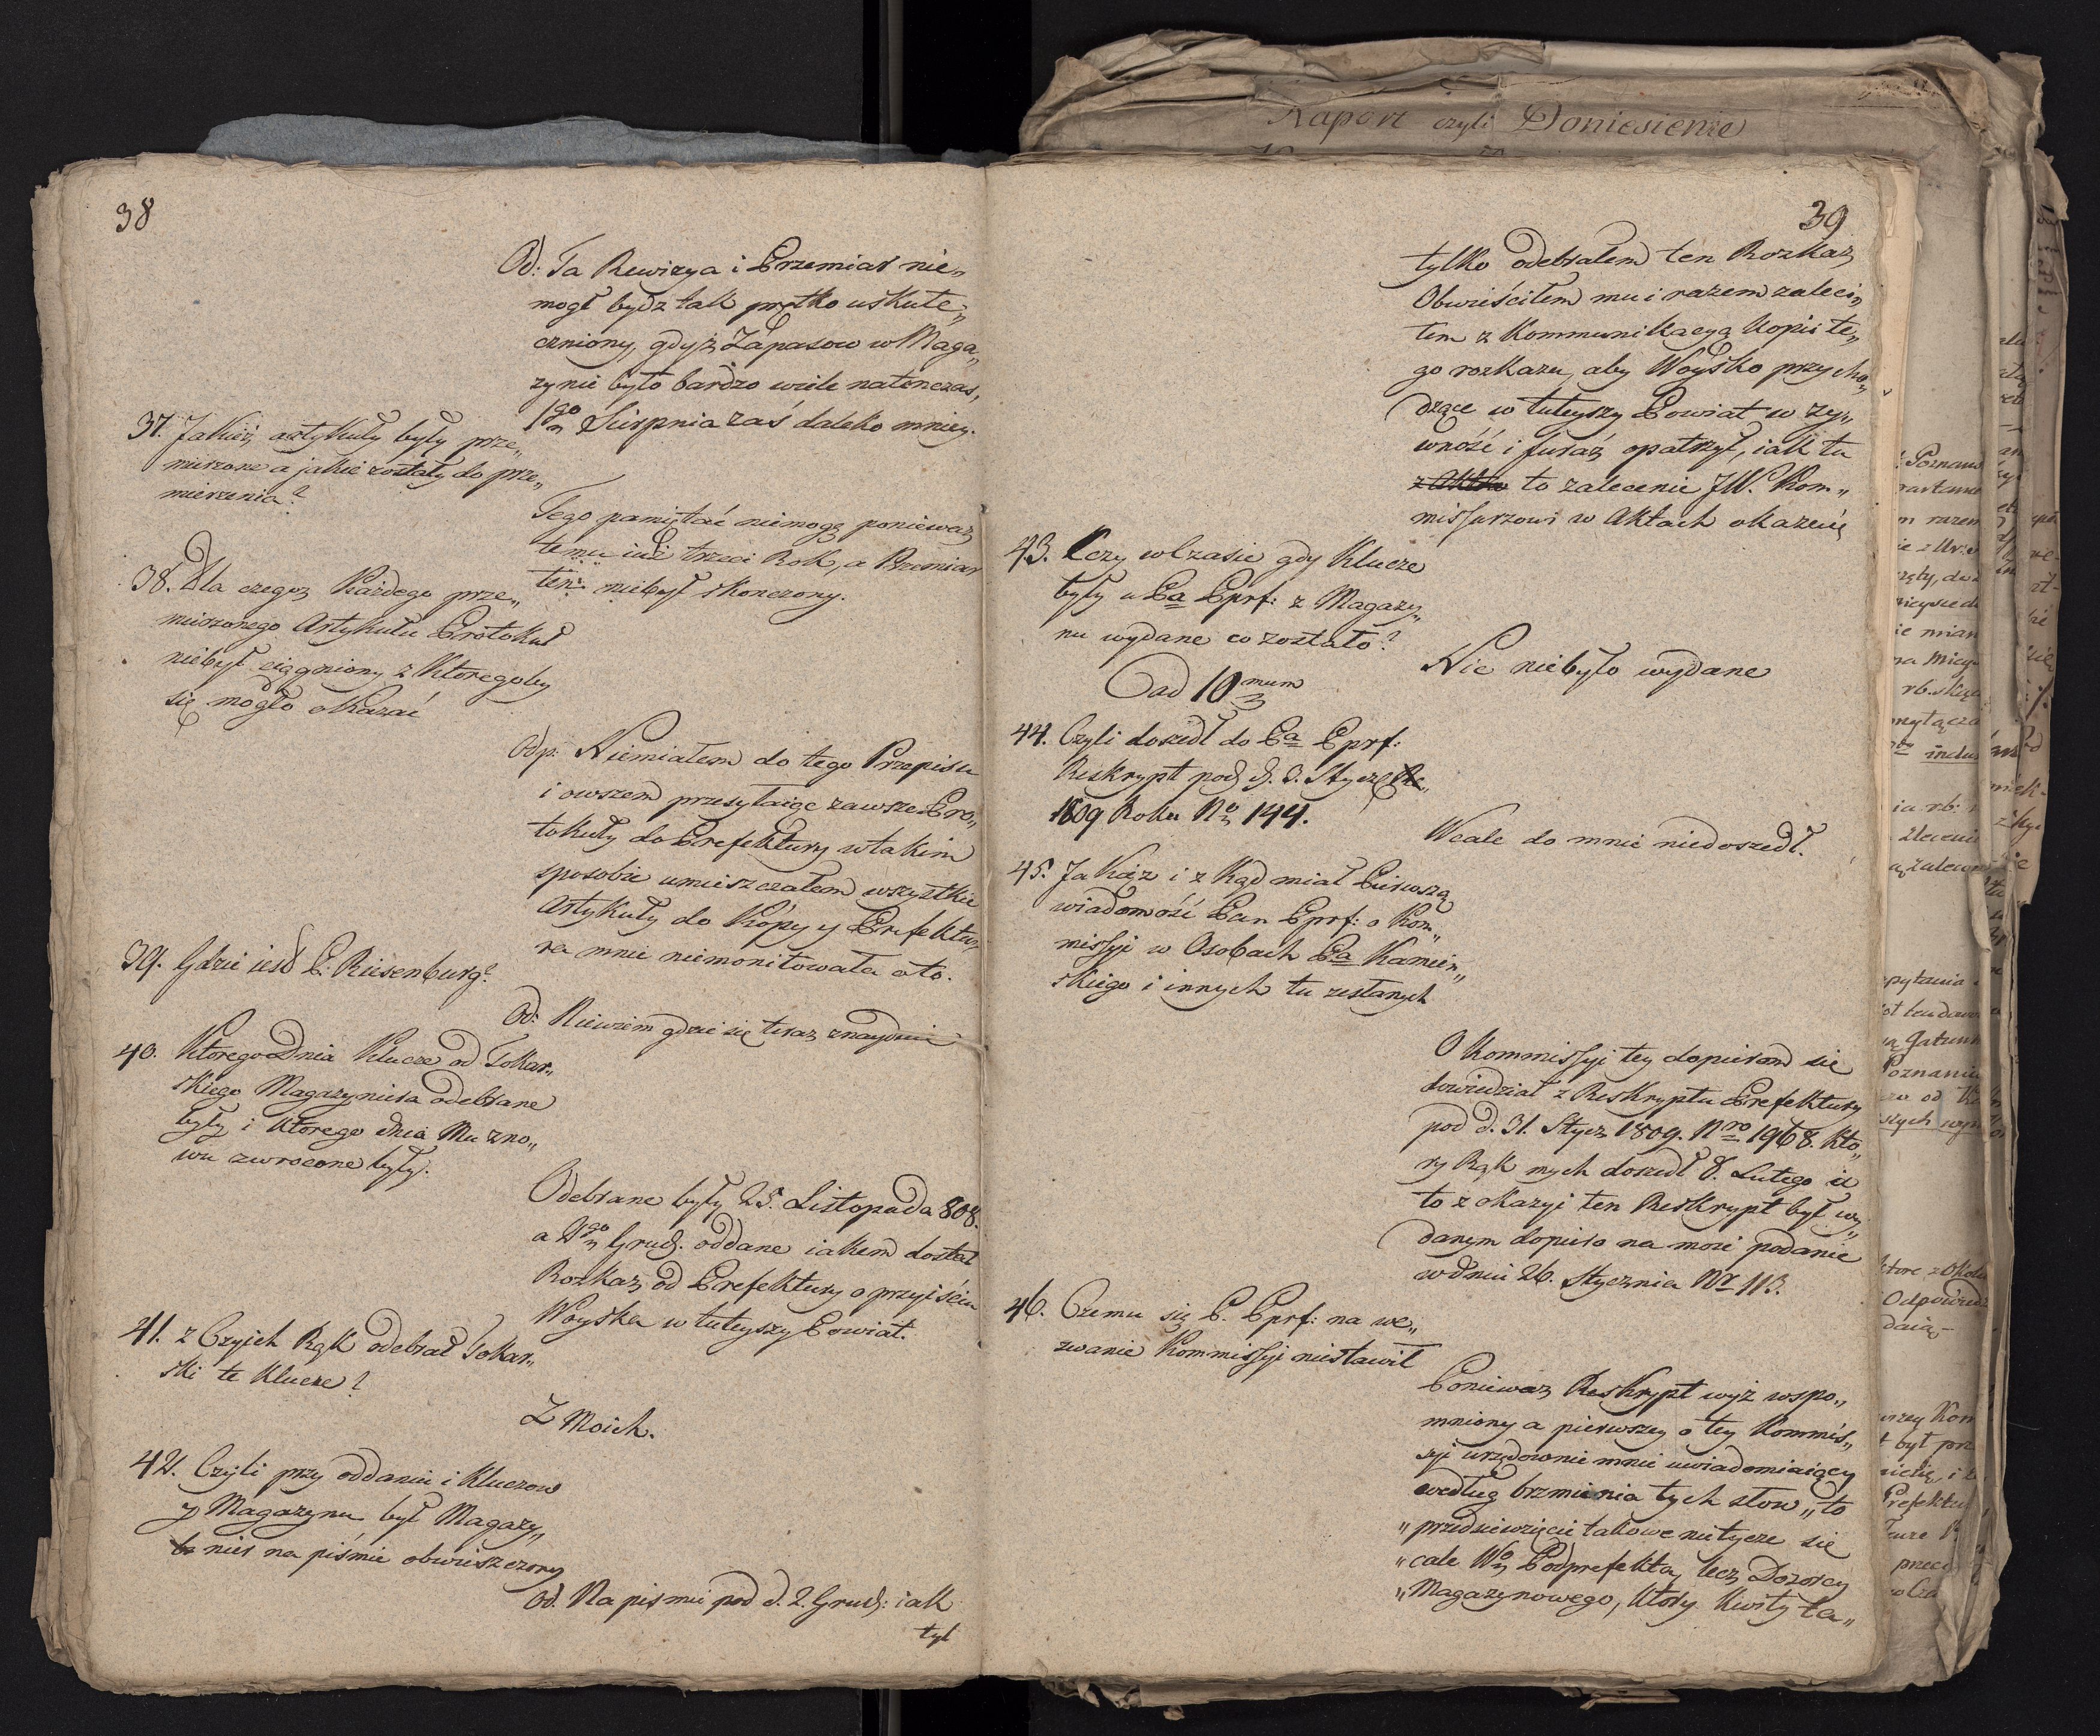 38
Od: Ta Rewizya i Przemiar nie„
mogł bydz tak prętko uskute„
czniony, gdyż Zapasow w Maga„
zynie było bardzo wiele natenczas,
1go Sierpnia zaś daleko mniey.
37. Jakież artykuły były prze„
mierzone a jakie zostały do prze„
mierzenia?
Tego pamiętać niemogę ponieważ
temu iuż trzeci Rok, a Przemiar
ten niebył skonczony.
38. Dla czegoz Każdego prze„
mierzonego Artykułu Protokuł
niebył ciągniony z Ktoregoby
się mogło okazać
Odp: Niemiałem do tego Przepisu
i owszem przesyłaiąc zawsze Pro„
tokuły do Prefektury w takim
sposobie umieszczałem wszystkie
Artykuły do Kópy y Prefektu„
ra mnie niemonitowała o to.
39. Gdzie iest P. Riesenburg?
Od: Niewiem gdzie się teraz znayduie
40. Ktorego Dnia Klucze od Tokar„
skiego Magazyniera odebrane
były i ktorego dnia Mu zno„
wu zwrocone były.
Odebrane były 25. Listopada 808.
a 2go Grud. oddane iakem dostał
Rozkaz od Prefektury o przyiściu
Woyska w tuteyszy Powiat.
41. z Czyich Rąk odebrał Tokar„
ski te Klucze?
Z Moich.
42. Czyli przy oddaniu i Kluczow
y Magazynu był Magazy„
nier na piśmie obwieszczony
Od. Na piśmie pod d. 2. Grud: iak
tyl
39
tylko odebrałem ten Rozkaz
Obwieściłem mu i razem zaleci„
łem z Kommunikacyą Kopii te„
go rozkazu, aby Woysko przycho„
dzące w tuteyszy Powiat w ży„
wność i furaż opatrzył, iak tu
to zalecenie JW. Kom„
missarzowi w Aktach okazuię
43. Czy w Czasie gdy Klucze
były u Pa Pprf: z Magazy„
nu wydane co zostało?
Nic niebyło wydane
ad 10mum
44. Czyli doszedł do Pa Pprf:
Reskrypt pod d. 3. Stycz
1809 Roku No 144.
Wcale do mnie niedoszedł.
45. Jakąż i z Kąd miał Pierwszą
wiadomość Pan Pprf: o Kom„
missyi w Osobach Pa Kamień„
skiego i innych tu zesłanych
O Kommissyi tey dopierom się
dowiedział z Reskryptu Prefektury
pod d. 31. Stycz 1809. Nro 1968. Kto„
ry Rąk mych doszedł 8. Lutego iż
to z okazyi ten Reskrypt był wy„
danym dopiero na moie podanie
w dniu 26. Stycznia Nr 113.
46. Czemu się P. Pprf: na we„
zwanie Kommissyi niestawił
Ponieważ Reskrypt wyż wspo„
mniony a pierwszey o tey Kommis„
syi urzędownie mnie uwiadomiaiący
według brzmienia tych słow „to
„przedsięwzięcie takowe nietycze się
„cale Wo Podprefekta, lecz Dozorcy
„Magazynowego, Ktory Kwity ta„
Raport czyli Doniesienie